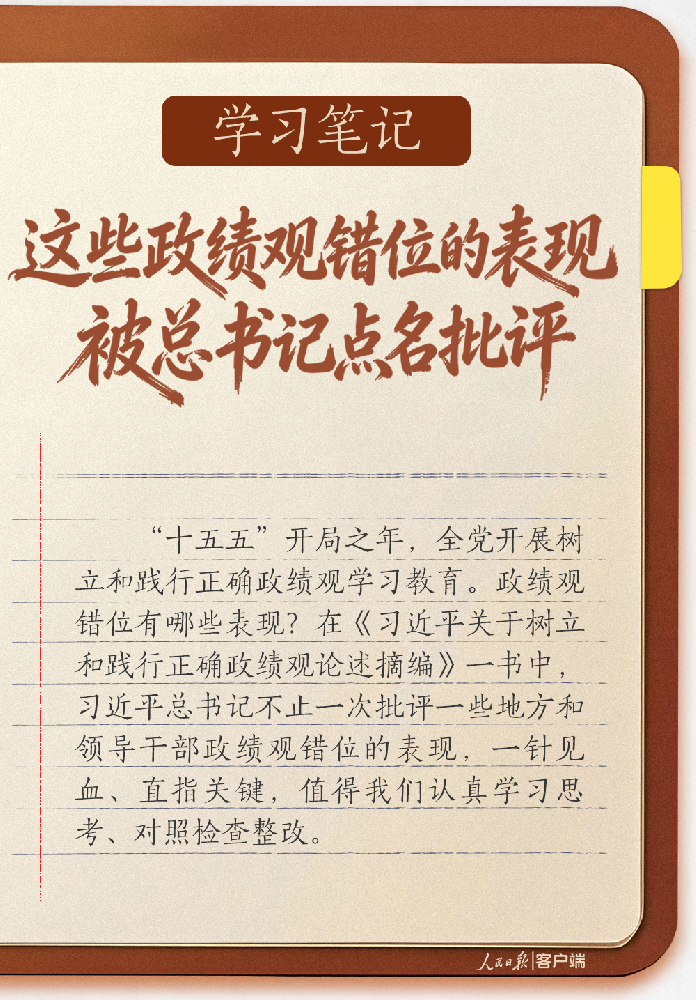 学习笔记
这些政绩观错位的表现
被总书记点名批评
“十五五”开局之年，全党开展树
立和践行正确政绩观学习教育。政绩观
错位有哪些表现？在《习近平关于树立
和践行正确政绩观论述摘编》一书中，
习近平总书记不止一次批评一些地方和
领导干部政绩观错位的表现，一针见
血、直指关键，值得我们认真学习思
考、对照检查整改。
人民日报|客户端